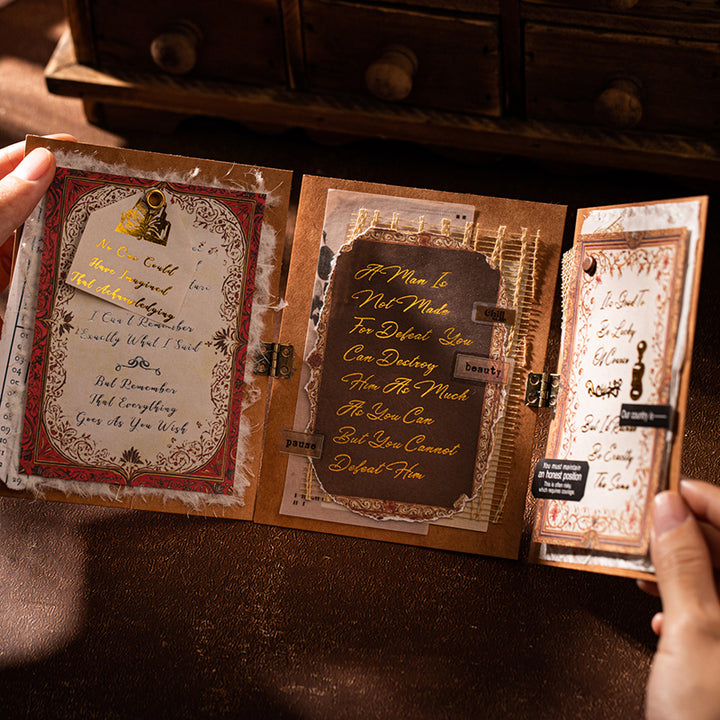 No One Could
Have Imagined
That Acknowledging
I Can't Remember
Exactly What I Said
But Remember
That Everything
Goes As You Wish
A Man Is
Not Made
For Defeat You
Can Destroy
Him As Much
As You Can
But You Cannot
Defeat Him
chill
beauty
pause
It's Good To
Be Lucky
Of Course
But I
Be Exactly
The Same
Our country is
You must maintain
an honest position
This is often risky,
which requires courage.